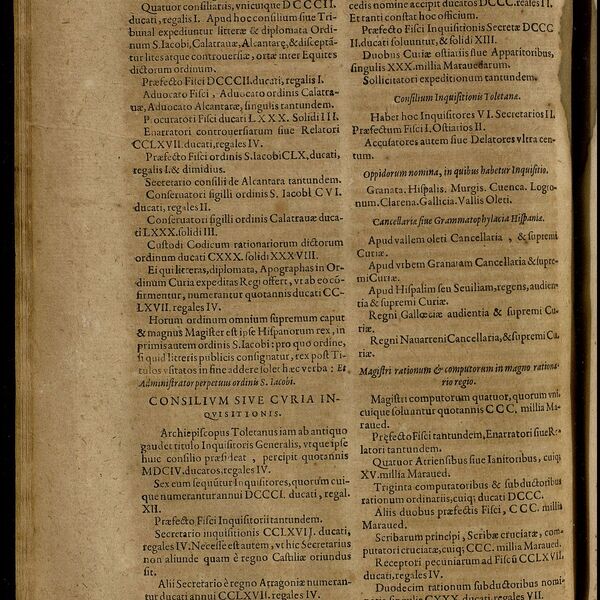 Quatuor consiliariis, vnicuique DCCCII.
ducati, regalis I. Apud hoc consilium siue Tri-
bunal expediuntur litteræ & diplomata Ordi-
num S. Iacobi, Calatrauæ, Alcantarę, & disceptã-
tur lites atque controuersiæ, ortæ inter Equites
dictorum ordinum.
Præfecto Fisci DCCCII. ducati, regalis I.
Aduocato Fisci, Aduocato ordinis Calatra-
uæ, Aduocato Alcantaræ, singulis tantundem.
Procuratori Fisci ducati LXXX. Solidi III.
Enarratori controuersiarum siue Relatori
CCLXVII. ducati, regales IV.
Præfecto Fisci ordinis S. Iacobi CLX, ducati,
regalis I. & dimidius.
Secretario consilii de Alcantara tantundem.
Conseruatori sigilli ordinis S. Iacobi CVI.
ducati, regales II.
Conseruatori sigilli ordinis Calatrauæ duca-
ti LXXX. solidi III.
Custodi Codicum rationariorum dictorum
ordinum ducati CXXX. solidi XXXVIII.
Ei qui litteras, diplomata, Apographas in Or-
dinum Curia expeditas Regi offert, vt ab eo cõ-
firmentur, numerantur quotannis ducati CC-
LXVII. regales IV.
Horum ordinum omnium supremum caput
& magnus Magister est ipse Hispanorum rex, in
primis autem ordinis S. Iacobi: pro quo ordine,
si quid litteris publicis consignatur, rex post Ti-
tulos vsitatos in fine addere solet hæc verba: Et
Administrator perpetuus ordinis S. Iacobi.
CONSILIVM SIVE CVRIA IN-
QVISITIONIS.
Archiepiscopus Toletanus iam ab antiquo
gaudet titulo Inquisitoris Generalis, vtque ipse
huic consilio præsideat, percipit quotannis
MDCIV. ducatos, regales IV.
Sex eum sequuntur Inquisitores, quorum cui-
que numerantur annui DCCCI. ducati, regal.
XII.
Præfecto Fisci Inquisitorii tantundem.
Secretario inquisitionis CCLXVII. ducati,
regales IV. Necesse est autem, vt hic Secretarius
non aliunde quam è regno Castiliæ oriundus
sit.
Alii Secretario è regno Arragoniæ numeran-
tur ducati annui CCLXVII. regales IV.
cedis nomine accipit ducatos DCCC. reales II.
Et ranti constat hoc officium.
Præfecto Fisci Inquisitionis Secretæ DCCC
II. ducati soluuntur, & solidi XIII.
Duobus Curiæ ostiariis siue Apparitoribus,
singulis XXX. millia Marauedarum.
Sollicitatori expeditionum tantundem.
Consilium Inquisitionis Toletanæ.
Habet hoc Inquisitores VI. Secretarios II.
Præfectum Fisci I. Ostiarios II.
Accusatores autem siue Delatores vltra cen-
tum.
Oppidorum nomina, in quibus habetur Inquisitio.
Granata. Hispalis. Murgis. Cuenca. Logro-
num. Clarena. Gallicia. Vallis Oleti.
Cancellariæ siue Grammatophylacia Hispaniæ.
Apud vallem oleti Cancellaria, & supremi
Curiæ.
Apud vrbem Granatam Cancellaria & supre-
mi Curiæ.
Apud Hispalim seu Seuiliam, regens, audien-
tia & supremi Curiæ.
Regni Gallœciæ audientia & supremi Cu-
riæ.
Regni Nauarreni Cancellaria, & supremi Cu-
riæ.
Magistri rationum & computorum in magno rationa-
rio regio.
Magistri computorum quatuor, quorum vni-
cuique soluuntur quotannis CCC. millia Ma-
raued.
Pręfecto Fisci tantundem, Enarratori siue Re-
latori tantundem.
Quatuor Atriensibus siue Ianitoribus, cuiq;
XV. millia Maraued.
Triginta computatoribus & subductoribus
rationum ordinariis, cuiq; ducati DCCC.
Aliis duobus præfectis Fisci, CCC. millia
Maraued.
Scribarum principi, Scribæ cruciatæ, com-
putatori cruciatæ, cuiq; CCC. millia Maraued.
Receptori pecuniarum ad Fiscũ CCLXVII,
ducati, regales IV.
Duodecim rationum subductoribus nomi-
CXXX. ducati, regales VII.